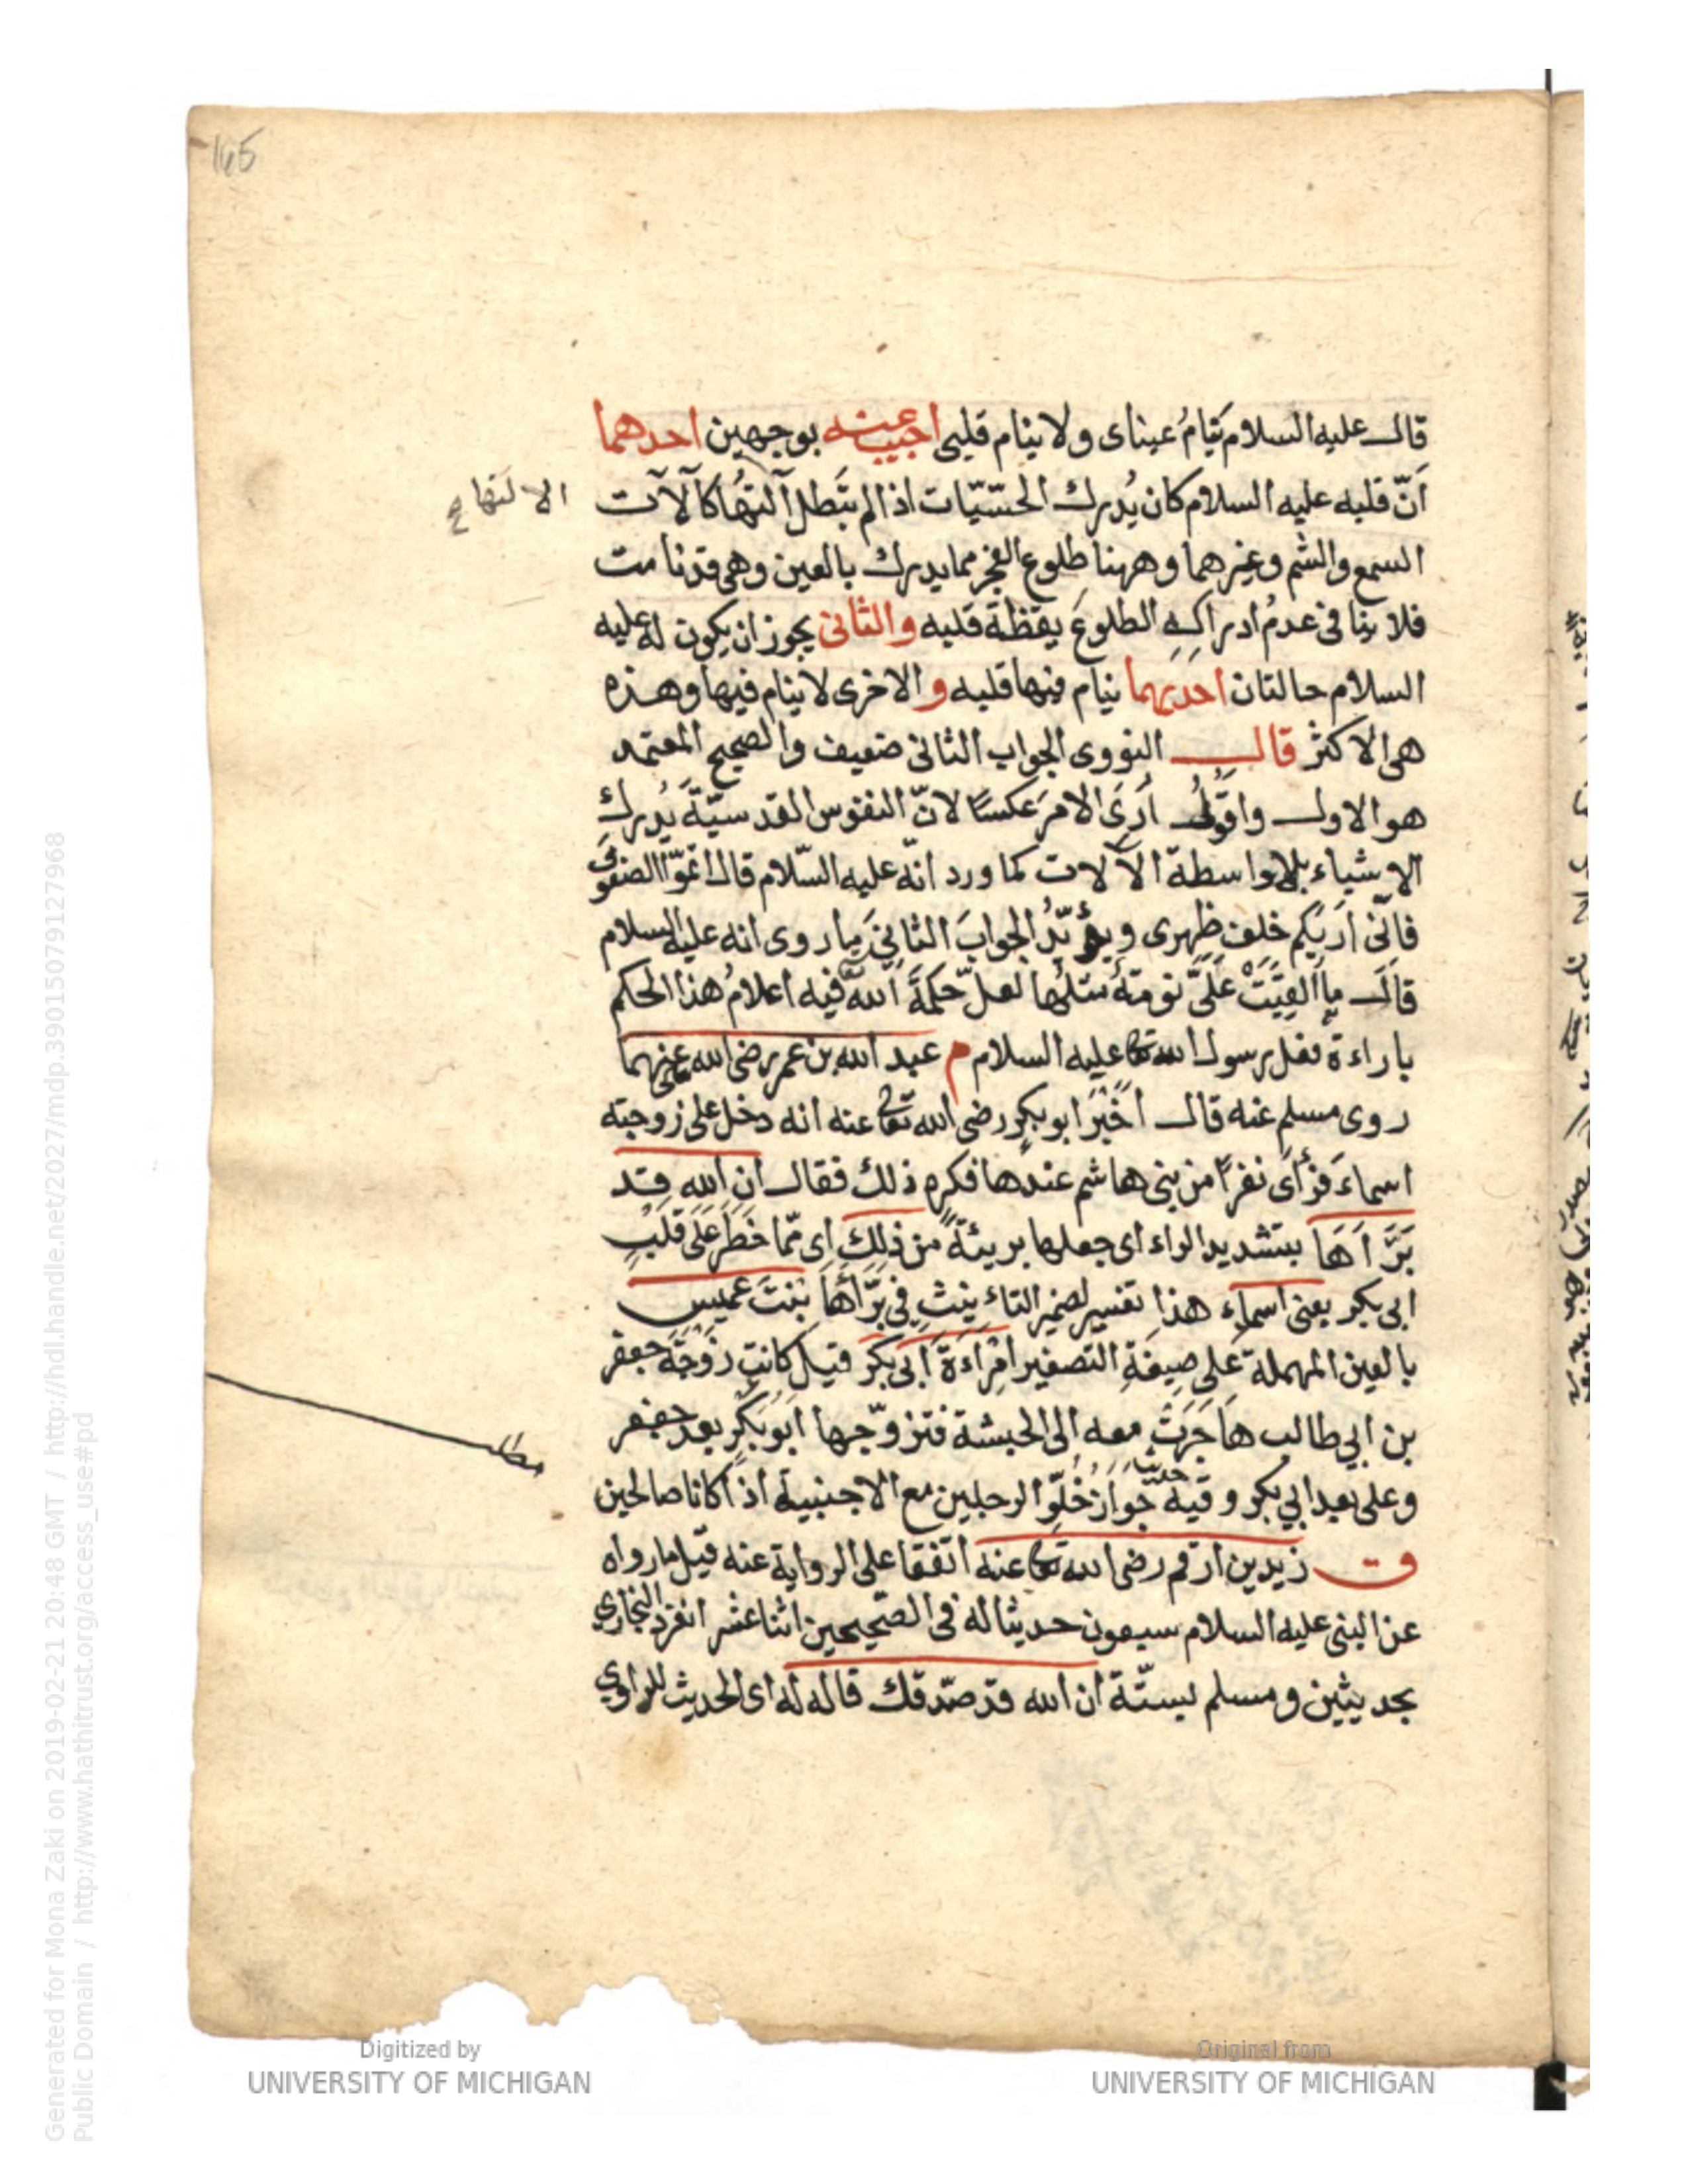 165
قال عليه السلام تَنَامُ عيناى ولا ينام قلبى اجيب عنه بوجهين احدهما
اَنّ قلبه عليه السلام كان يُدرك الحسّيّات اذا لم تبَطل آلتهُا كآلات
الا لتها صح
السمع والشم وغيرهما وههنا طلوع الفجر مما يدرك بالعين وهى قدنامت
فلا ينا فى عدمُ ادراكِهِ الطلوعَ يقظةَ قلبه والثانى يجوز ان يكون له عليه
السلام حالتان احديهما ينام فيها قلبه والاخرى لا ينام فيها وهذه
هى الاكثر قال النووى الجواب الثانى ضعيف والصحيح المعتمد
هو الاول واقولُ اَرَى الامرَ عكسًا لانّ النفوس القدسيّةَ يُدرك
الاشياء بلا واسطة الآلات كما ورد انّه عليه السّلام قال اتمّوا الصفوف
فانّى اَريٰكم خلف ظهرى ويؤيّدُ الجوابَ الثانِىَ ما روى انه عليه السلام
قال ما اُلقِيَتْ عَلَىَّ نومةٌ مثلُها لعلّ حكمةَ اللهِ فيه اعلامُ هذا الحكم
باراءة فعل رسول الله تعا عليه السلام م عبد الله بن عمر رضى الله عنهما
روى مسلم عنه قال اَخْبَرَ ابو بكر رضى الله تعا عنه انه دخل على زوجته
اسماءَ فرأى نفرًا من بنى هاشم عندها فكره ذلك فقال ان الله قد
بَرَّاَهَا بتشديد الراء اى جعلها بريئةً من ذلك اى ممّا خَطَرَ عَلَى قَلْبِ
ابى بكر يعنى اسماء هذا تفسير لضمير التاءنيثِ فى برّأها بنتَ عميس
بالعين المهملة على صيغةِ التصغير امْرَاءةَ ابى بكر قيل كانت زوجَةَ جعفر
بن ابى طالب هَاجَرَتْ معه الى الحبشة فتزوّجها ابوبكر بعد جعفر
مطلب
وعلى بعد ابى بكر وفيه جوازُ خُلُوّ الرجلين مع الاجنبية اذا كانا صالحين
ق زيد بن ارقم رضى الله تعا عنه اتفقا على الرواية عنه قيل ما رواه
عن النبى عليه السلام سبعون حديثا له فى الصّحيحين اثنا عشر انفرد البخارى
بحديثين ومسلم بستّة ان الله قد صدّقك قاله له اى الحديث للراوى
Digitized by
UNIVERSITY OF MICHIGAN
Original from
UNIVERSITY OF MICHIGAN
Generated for Mona Zaki on 2019-02-21 20:48 GMT / http://hdl.handle.net/2027/mdp.39015079127968
Public Domain / http://www.hathitrust.org/access_use#pd